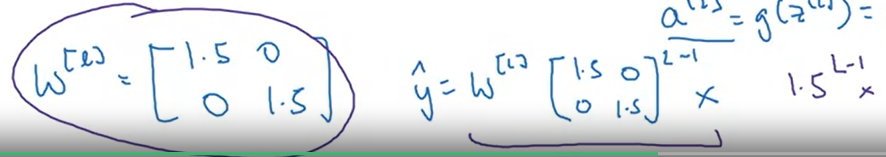 a^[1] = g(z^[1]) =
W^[l] = [1.5 0
0 1.5]
ŷ = W^[L] [1.5 0
0 1.5]^L-1 x
1.5^L-1 x